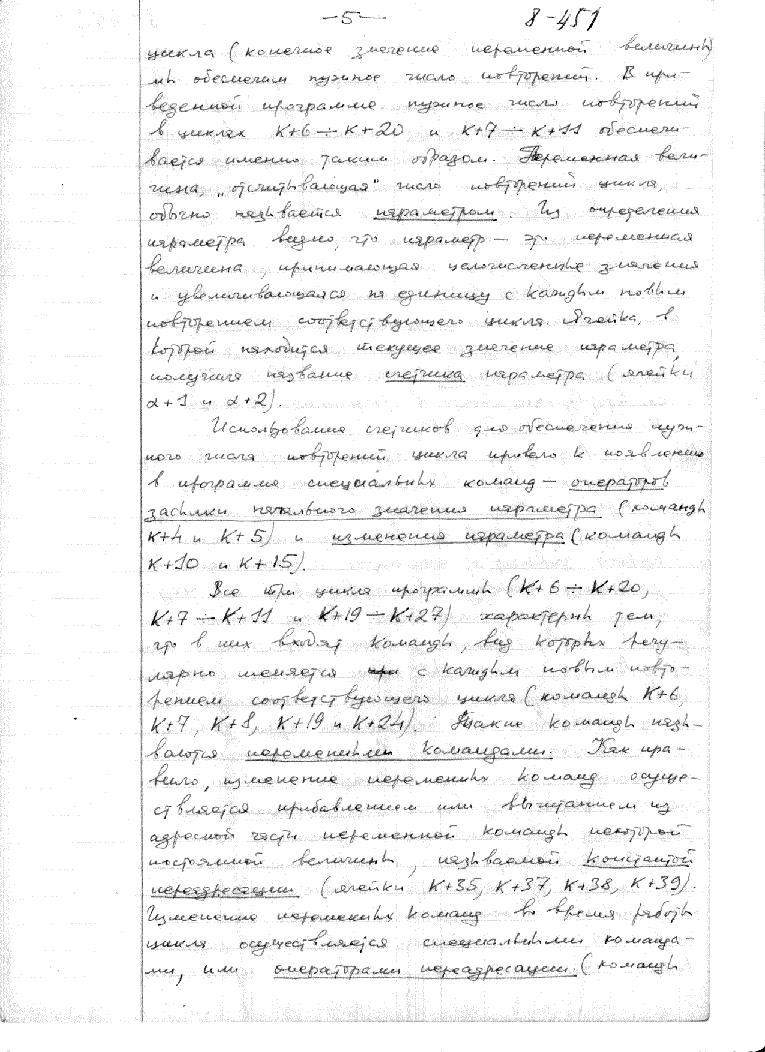 —5—
8-451
цикла (конечное значение переменной величины)
мы обеспечим нужное число повторений. В при-
веденной программе нужное число повторений
в циклах К+6 ÷ К+20 и К+7 ÷ К+11 обеспечи-
вается именно таким образом. Переменная вели-
чина, „отсчитывающая" число повторений цикла,
обычно называется параметром. Из определения
параметра видно, что параметр — это переменная
величина, принимающая целочисленные значения
и увеличивающаяся на единицу с каждым новым
повторением соответствующего цикла. Ячейка, в
которой находится текущее значение параметра,
получила название счетчика параметра (ячейки
α+1 и α+2).
Использование счетчиков для обеспечения нуж-
ного числа повторений цикла привело к появлению
в программе специальных команд — операторов
засылки начального значения параметра (команды
К+4 и К+5) и изменения параметра (команды
К+10 и К+15).
Все три цикла программы (К+6 ÷ К+20,
К+7 ÷ К+11 и К+19 ÷ К+27) характерны тем,
что в них входят команды, вид которых регу-
лярно меняется с каждым новым повто-
рением соответствующего цикла (команды К+6,
К+7, К+8, К+19 и К+24). Такие команды назы-
ваются переменными командами. Как пра-
вило, изменение переменных команд осуще-
ствляется прибавлением или вычитанием из
адресной части переменной команды некоторой
постоянной величины, называемой константой
переадресации (ячейки К+35, К+37, К+38, К+39).
Изменение переменных команд во время работы
цикла осуществляется специальными команда-
ми, или операторами переадресации (команды